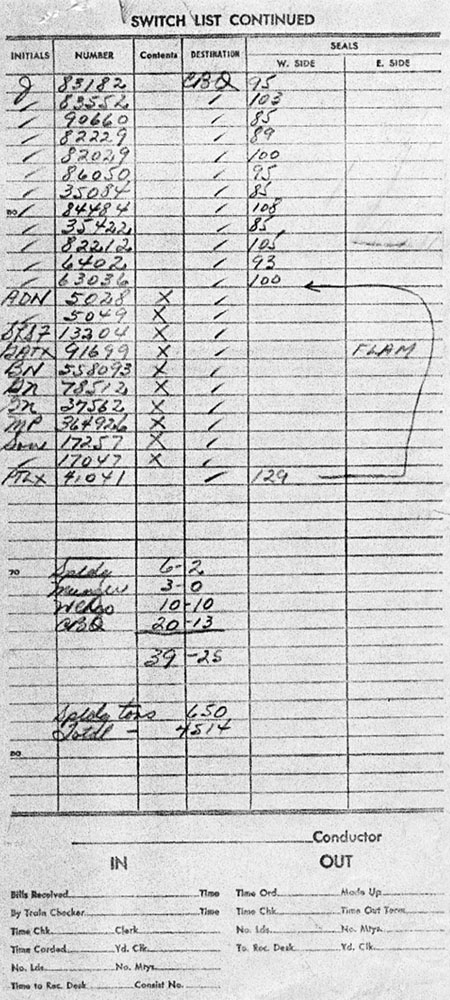 SWITCH LIST CONTINUED
INITIALS NUMBER Contents DESTINATION SEALS
W. SIDE E. SIDE
J 83182 CBQ 95
✓ 83552 ✓ 103
✓ 90660 ✓ 85
✓ 82229 ✓ 89
✓ 82029 ✓ 100
✓ 86050 ✓ 95
✓ 35084 ✓ 85
✓ 84484 ✓ 108
✓ 35422 ✓ 85
✓ 82212 ✓ 105
✓ 6402 ✓ 93
✓ 63036 ✓ 100
ADN 5028 X ✓
✓ 5049 X ✓
SPSF 13204 X ✓
GATX 91699 X ✓ FLAM
BN 558093 X ✓
78512 X ✓
37562 X ✓
MP 364926 X ✓
Soo 17257 X ✓
✓ 17047 X ✓
PTLX 41041 ✓ 129
70 Spldg 6-2
3-0
10-10
CBQ 20-13
39-25
Spldg tons 650
Total - 4514
80
Conductor
IN OUT
Bills Received Time Time Ord. Made Up
By Train Checker Time Time Chk. Time Out Term.
Time Chk. Clerk No. Lds. No. Mtys.
Time Carded Yd. Clk. To. Rec. Desk Yd. Clk.
No. Lds. No. Mtys.
Time to Rec. Desk Consist No.